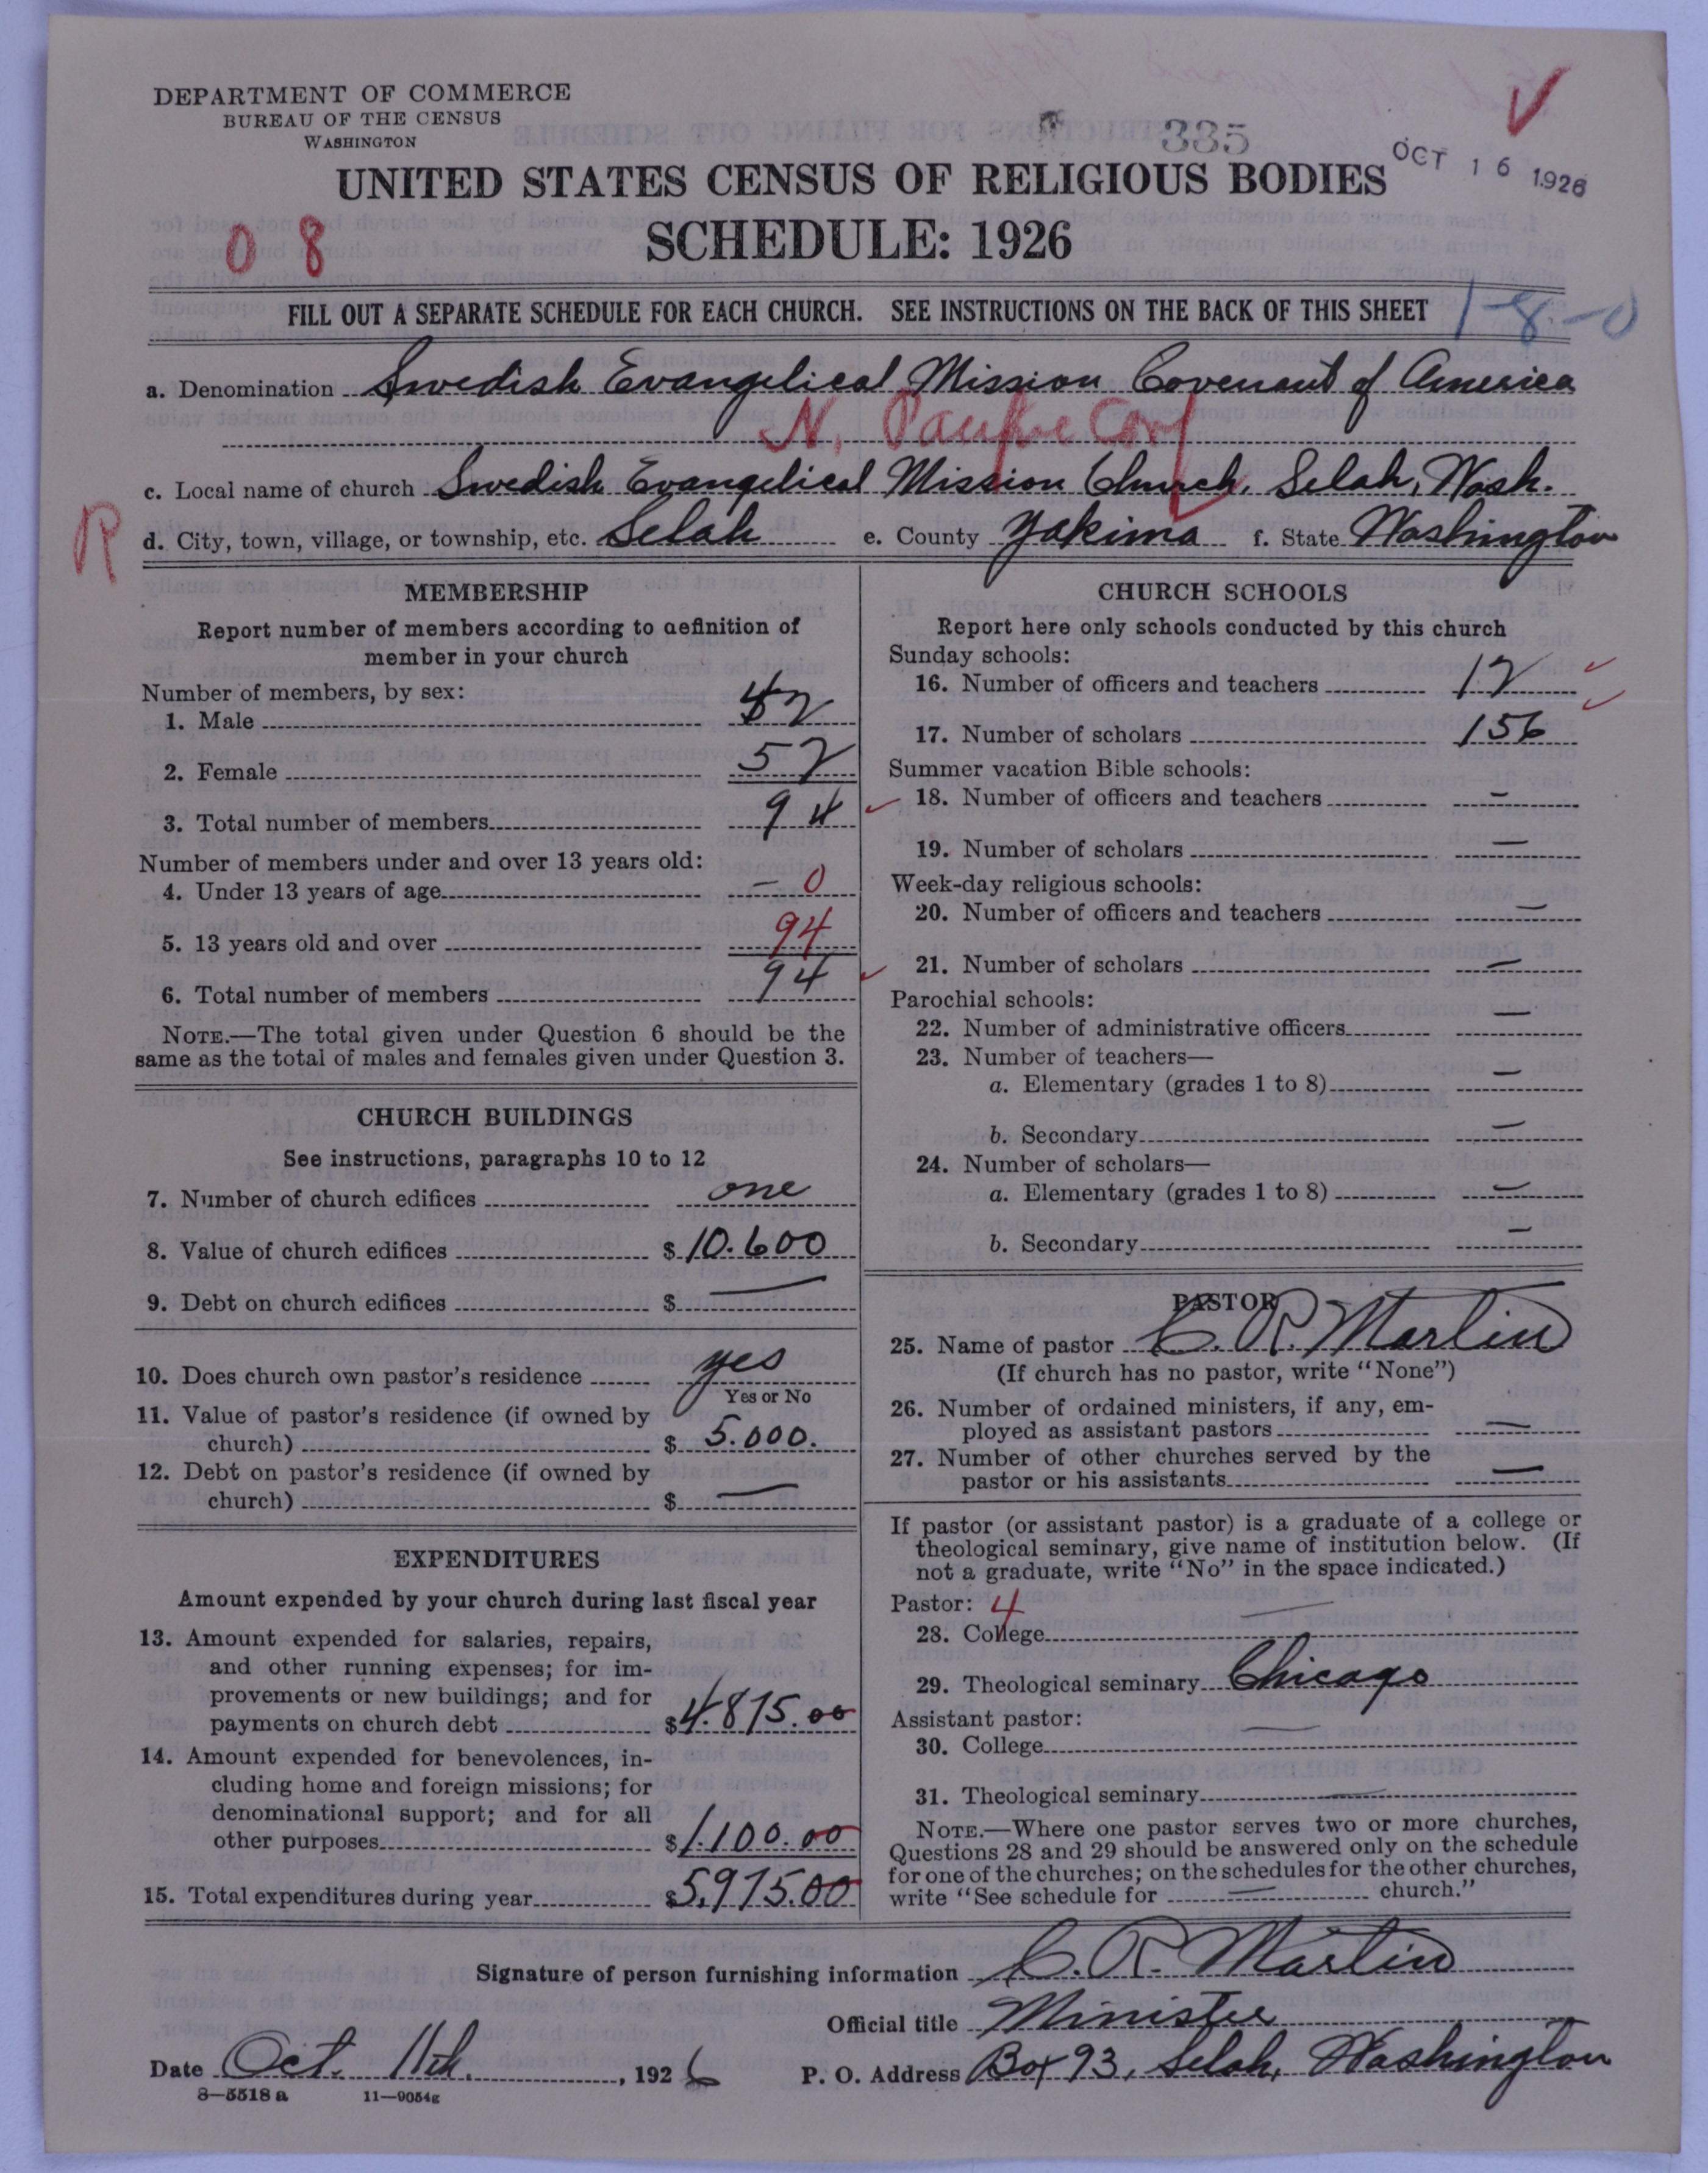 DEPARTMENT OF COMMERCE
BUREAU OF THE CENSUS
WASHINGTON
335
OCT 16 1926
UNITED STATES CENSUS OF RELIGIOUS BODIES
0 8
SCHEDULE: 1926
FILL OUT A SEPARATE SCHEDULE FOR EACH CHURCH. SEE INSTRUCTIONS ON THE BACK OF THIS SHEET
1-8-0
a. Denomination Swedish Evangelical Mission Covenant of America
N. Pacific Conf
c. Local name of church Swedish Evangelical Mission Church, Selah, Wash.
R
d. City, town, village, or township, etc. Selah e. County Yakima f. State Washington
MEMBERSHIP
Report number of members according to definition of
member in your church
Number of members, by sex:
1. Male 42
2. Female 52
3. Total number of members 94
Number of members under and over 13 years old:
4. Under 13 years of age – 0
5. 13 years old and over 94
6. Total number of members 94
NOTE.—The total given under Question 6 should be the
same as the total of males and females given under Question 3.
CHURCH BUILDINGS
See instructions, paragraphs 10 to 12
7. Number of church edifices one
8. Value of church edifices $ 10.600
9. Debt on church edifices $ —
10. Does church own pastor's residence yes
Yes or No
11. Value of pastor's residence (if owned by
church) $ 5.000.
12. Debt on pastor's residence (if owned by
church) $ —
EXPENDITURES
Amount expended by your church during last fiscal year
13. Amount expended for salaries, repairs,
and other running expenses; for im-
provements or new buildings; and for
payments on church debt $ 4.875.00
14. Amount expended for benevolences, in-
cluding home and foreign missions; for
denominational support; and for all
other purposes $ 1.100.00
15. Total expenditures during year $ 5,975.00
CHURCH SCHOOLS
Report here only schools conducted by this church
Sunday schools:
16. Number of officers and teachers 12
17. Number of scholars 156
Summer vacation Bible schools:
18. Number of officers and teachers —
19. Number of scholars —
Week-day religious schools:
20. Number of officers and teachers —
21. Number of scholars —
Parochial schools:
22. Number of administrative officers —
23. Number of teachers—
a. Elementary (grades 1 to 8) —
b. Secondary —
24. Number of scholars—
a. Elementary (grades 1 to 8) —
b. Secondary —
PASTOR
25. Name of pastor C. R. Martin
(If church has no pastor, write "None")
26. Number of ordained ministers, if any, em-
ployed as assistant pastors —
27. Number of other churches served by the
pastor or his assistants —
If pastor (or assistant pastor) is a graduate of a college or
theological seminary, give name of institution below. (If
not a graduate, write "No" in the space indicated.)
Pastor: 4
28. College —
29. Theological seminary Chicago
Assistant pastor:
30. College —
31. Theological seminary —
NOTE.—Where one pastor serves two or more churches,
Questions 28 and 29 should be answered only on the schedule
for one of the churches; on the schedules for the other churches,
write "See schedule for — church."
Signature of person furnishing information C. R. Martin
Official title Minister
Date Oct. 11th, 1926 P. O. Address Box 93, Selah, Washington
8—5518 a 11—9054g